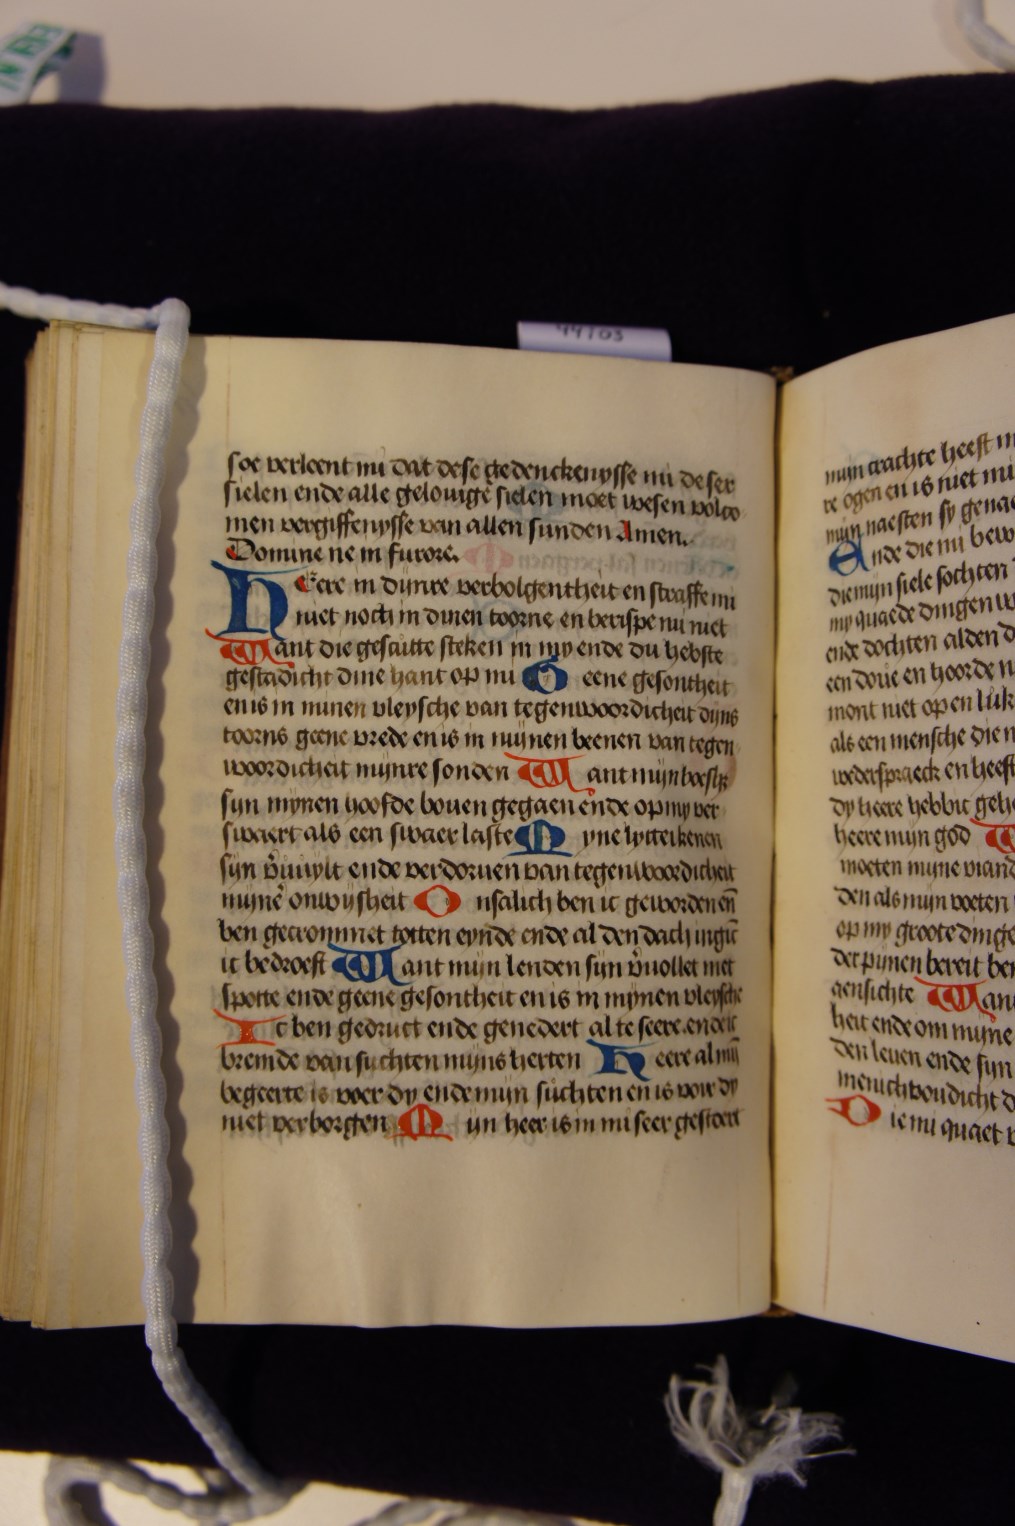 soe verleent mi dat dese gedenckenysse mi deser
sielen ende alle gelouige sielen moet wesen volco
men vergiffenysse van allen sunden Amen.
Domine ne in furore.
HEere in dijnre verbolgentheit en straffe mi
niet noch in dinen toorne en berispe mi niet
Want die gescutte steken in my ende du hebste
gestadicht dine hant op mi Geene gesontheit
en is in minen vleysche van tegenwoordicheit dijns
toorns geene vrede en is in mijnen beenen van tegen
woordicheit mijnre sonden Want mijn
sijn mynen hoofde bouen gegaen ende op my ver
swaert als een swaer laste Myne lytteikenen
sijn v̄uuylt ende verdoruen van tegenwoordicheit
onwijsheit Onsalich ben ic geworden en̄
ben gecrommet totten eynde ende al den dach
ic bedroeft Want mijn lenden sijn v̄uollet met
spotte ende geene gesontheit en is in mijnen vleysche
Ic ben gedruct ende genedert al te seere
bremde van suchten mijns herten Heere al mijn
begeerte is voer dy ende mijn suchten en is voir dy
niet verborgen Mijn heer is in mi seer gestoert
mijn crachte heeft
re ogen en is niet mi
mijn naesten sy
Ende die mi
die mijn siele sochten
my quaede dingen
ende dochten alden
een doue en hoorde
mont niet op en
als een mensche die
wederspraeck en heeft
dy heere hebbic
heere mijn god
moeten mijne viand
den als mijn voeten
op my groote dinge
der pijnen bereit
aensichte Want
heit ende om mijne
den leuen ende sijn
menichvoudicht
Die mi quaet
44/03